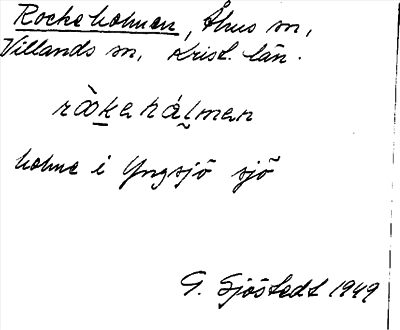 Rockeholmen, Åhus sn,
Villands sn, Krist. län.
ràokehálmen
holme i Yngsjö sjö
G. Sjöstedt 1949